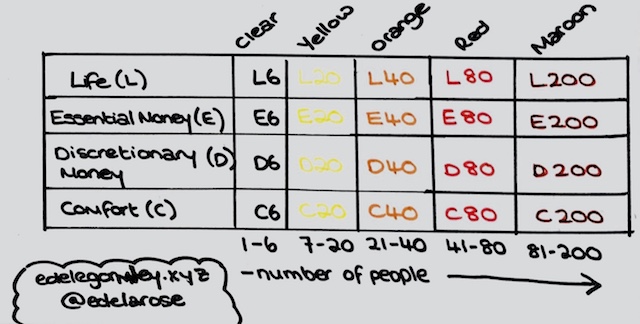 Clear Yellow Orange Red Maroon
Life (L) L6 L20 L40 L80 L200
Essential Money (E) E6 E20 E40 E80 E200
Discretionary (D) D6 D20 D40 D80 D200
Money
Comfort (C) C6 C20 C40 C80 C200
1-6 7-20 21-40 41-80 81-200
-number of people
@edelarose